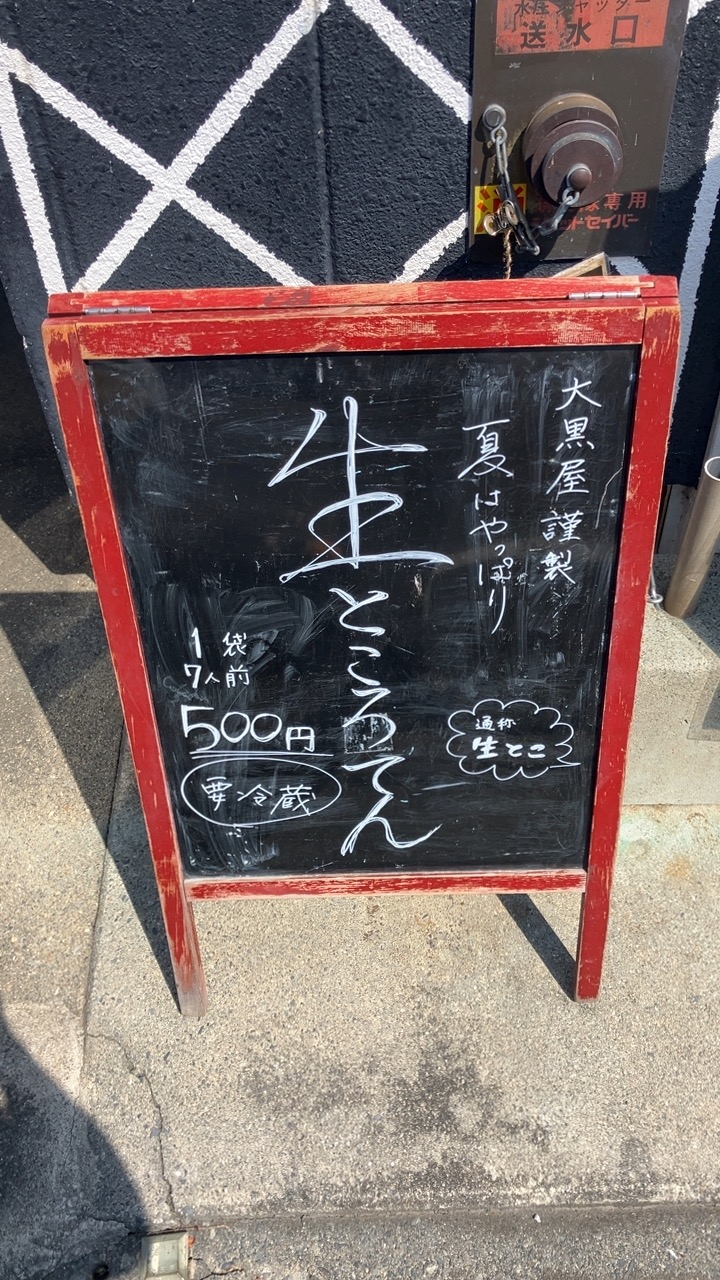 水圧シャッター
送水口
消防隊専用
大黒屋 謹製
夏はやっぱり
生ところてん
通称
生とこ
1袋
7人前
500円
要冷蔵